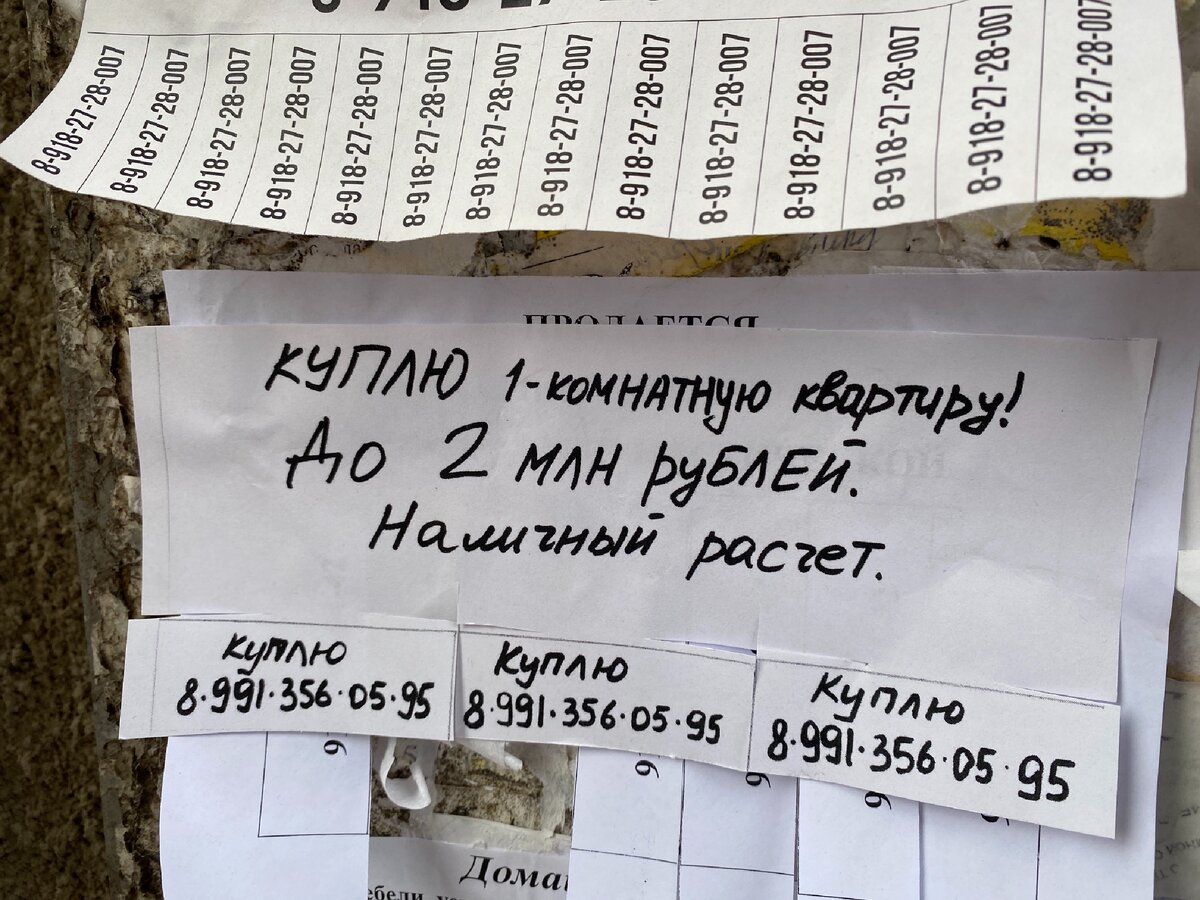 8-918-27-28-007
8-918-27-28-007
8-918-27-28-007
8-918-27-28-007
8-918-27-28-007
8-918-27-28-007
8-918-27-28-007
8-918-27-28-007
8-918-27-28-007
8-918-27-28-007
8-918-27-28-007
8-918-27-28-007
8-918-27-28-007
8-918-27-28-007
ПРОДАЕТСЯ
КУПЛЮ 1-комнатную квартиру!
До 2 млн рублей.
Наличный расчет.
Куплю
8.991.356.05.95
Куплю
8.991.356.05.95
Куплю
8.991.356.05.95